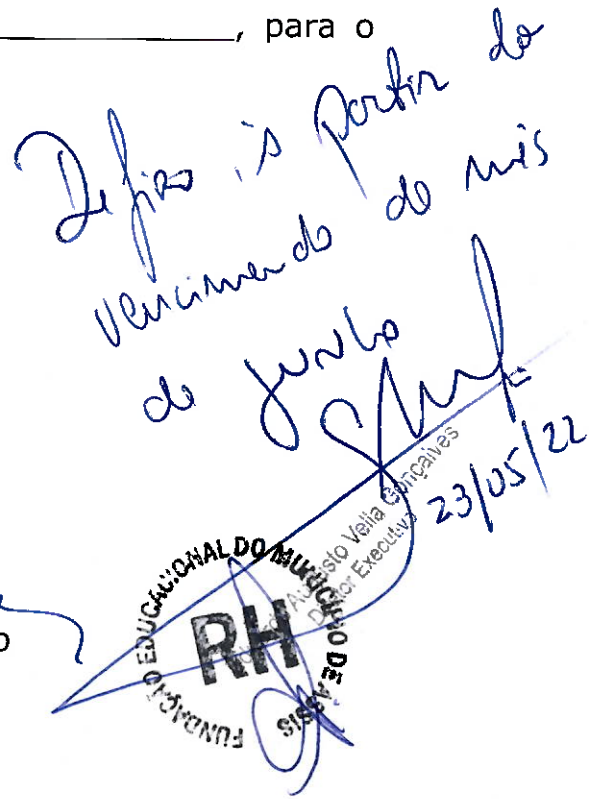 , para o
Defiro, à partir do
vencimendo do mês
de junho
23/05/22
Augusto Vella Gonçalves
Diretor Executivo
FUNDAÇÃO EDUCACIONAL DO MUNICÍPIO DE ASSIS
RH
o